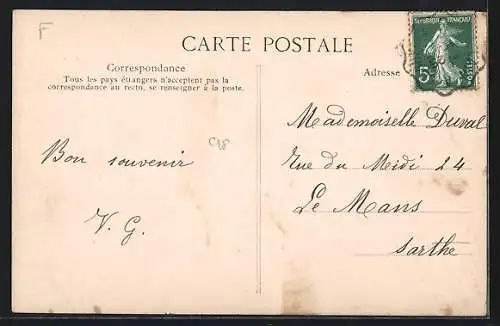 F
CARTE POSTALE
Correspondance
Tous les pays étrangers n'acceptent pas la
correspondance au recto, se renseigner à la poste.
Adresse
5
POSTES
C18
Bon souvenir
V. G.
Mademoiselle Duval
Rue du Midi 24
Le Mans
Sarthe